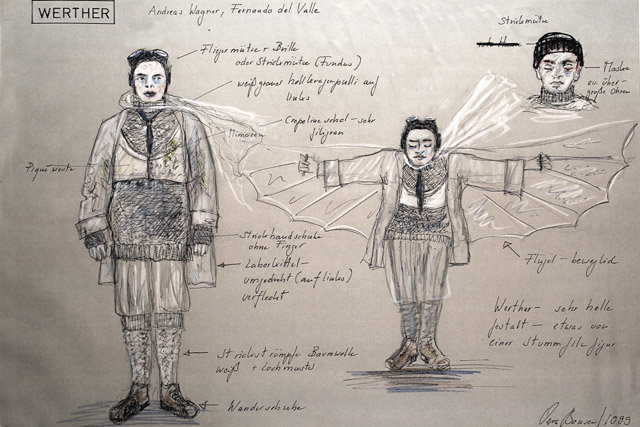 WERTHER
Andreas Wagner, Fernando del Valle
Strickmütze
Fliegermütze + Brille
oder Strickmütze (Fundus)
weißgrauer
auf
links
Crepeline schal – sehr
Mimosen
Maske
ev. über-
große Ohren
Piqué weste
Strickhandschuhe
ohne Finger
Laborkittel –
umgedreht (auf links)
verflecht
Flügel – beweglich
Werther – sehr helle
Gestalt – etwas von
einer Stummfilmfigur
Strickstrümpfe Baumwolle
weiß + Lochmuster
Wanderschuhe
1999